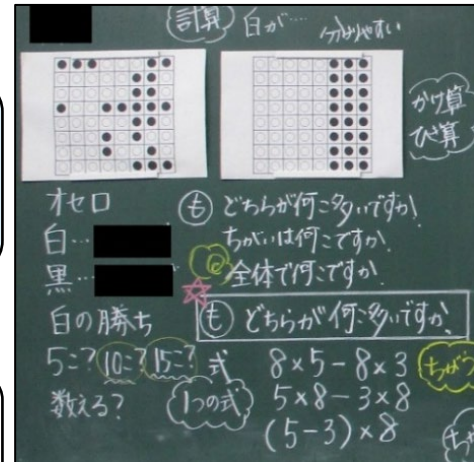 計算 白が… 分かりやすい
かけ算
ひき算
オセロ
白…
黒…
白の勝ち
5こ? 10こ? 15こ?
数える?
も どちらが何こ多いですか。
ちがいは何こですか。
全体で何こですか。
も どちらが何こ多いですか。
式 8×5-8×3
1つの式 5×8-3×8
(5-3)×8
ちがう